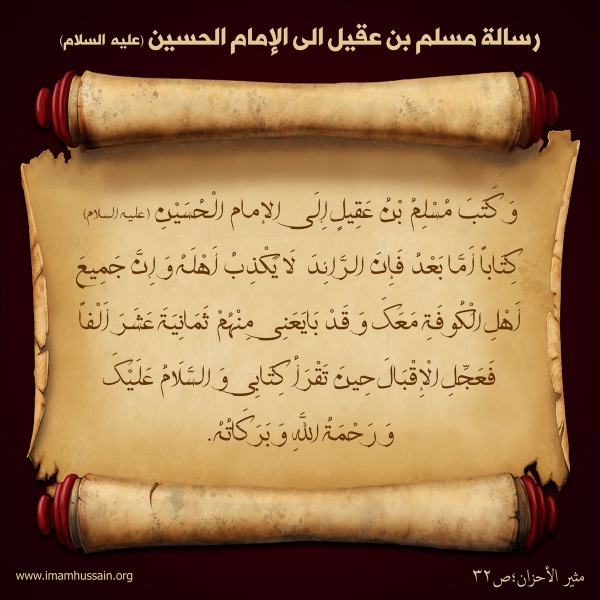 رسالة مسلم بن عقيل الى الإمام الحسين (عليه السلام)
وَ كَتَبَ مُسْلِمُ بْنُ عَقِيلٍ إِلَى الإمام الْحُسَيْنِ (عليه السلام)
كِتَاباً أَمَّا بَعْدُ فَإِنَّ الرَّائِدَ لَا يَكْذِبُ أَهْلَهُ وَ إِنَّ جَمِيعَ
أَهْلِ الْكُوفَةِ مَعَكَ وَ قَدْ بَايَعَنِي مِنْهُمْ ثَمَانِيَةَ عَشَرَ أَلْفاً
فَعَجِّلِ الْإِقْبَالَ حِينَ تَقْرَأُ كِتَابِي وَ السَّلَامُ عَلَيْكَ
وَ رَحْمَةُ اللَّهِ وَ بَرَكَاتُهُ.
www.imamhussain.org
مثير الأحزان؛ص٣٢